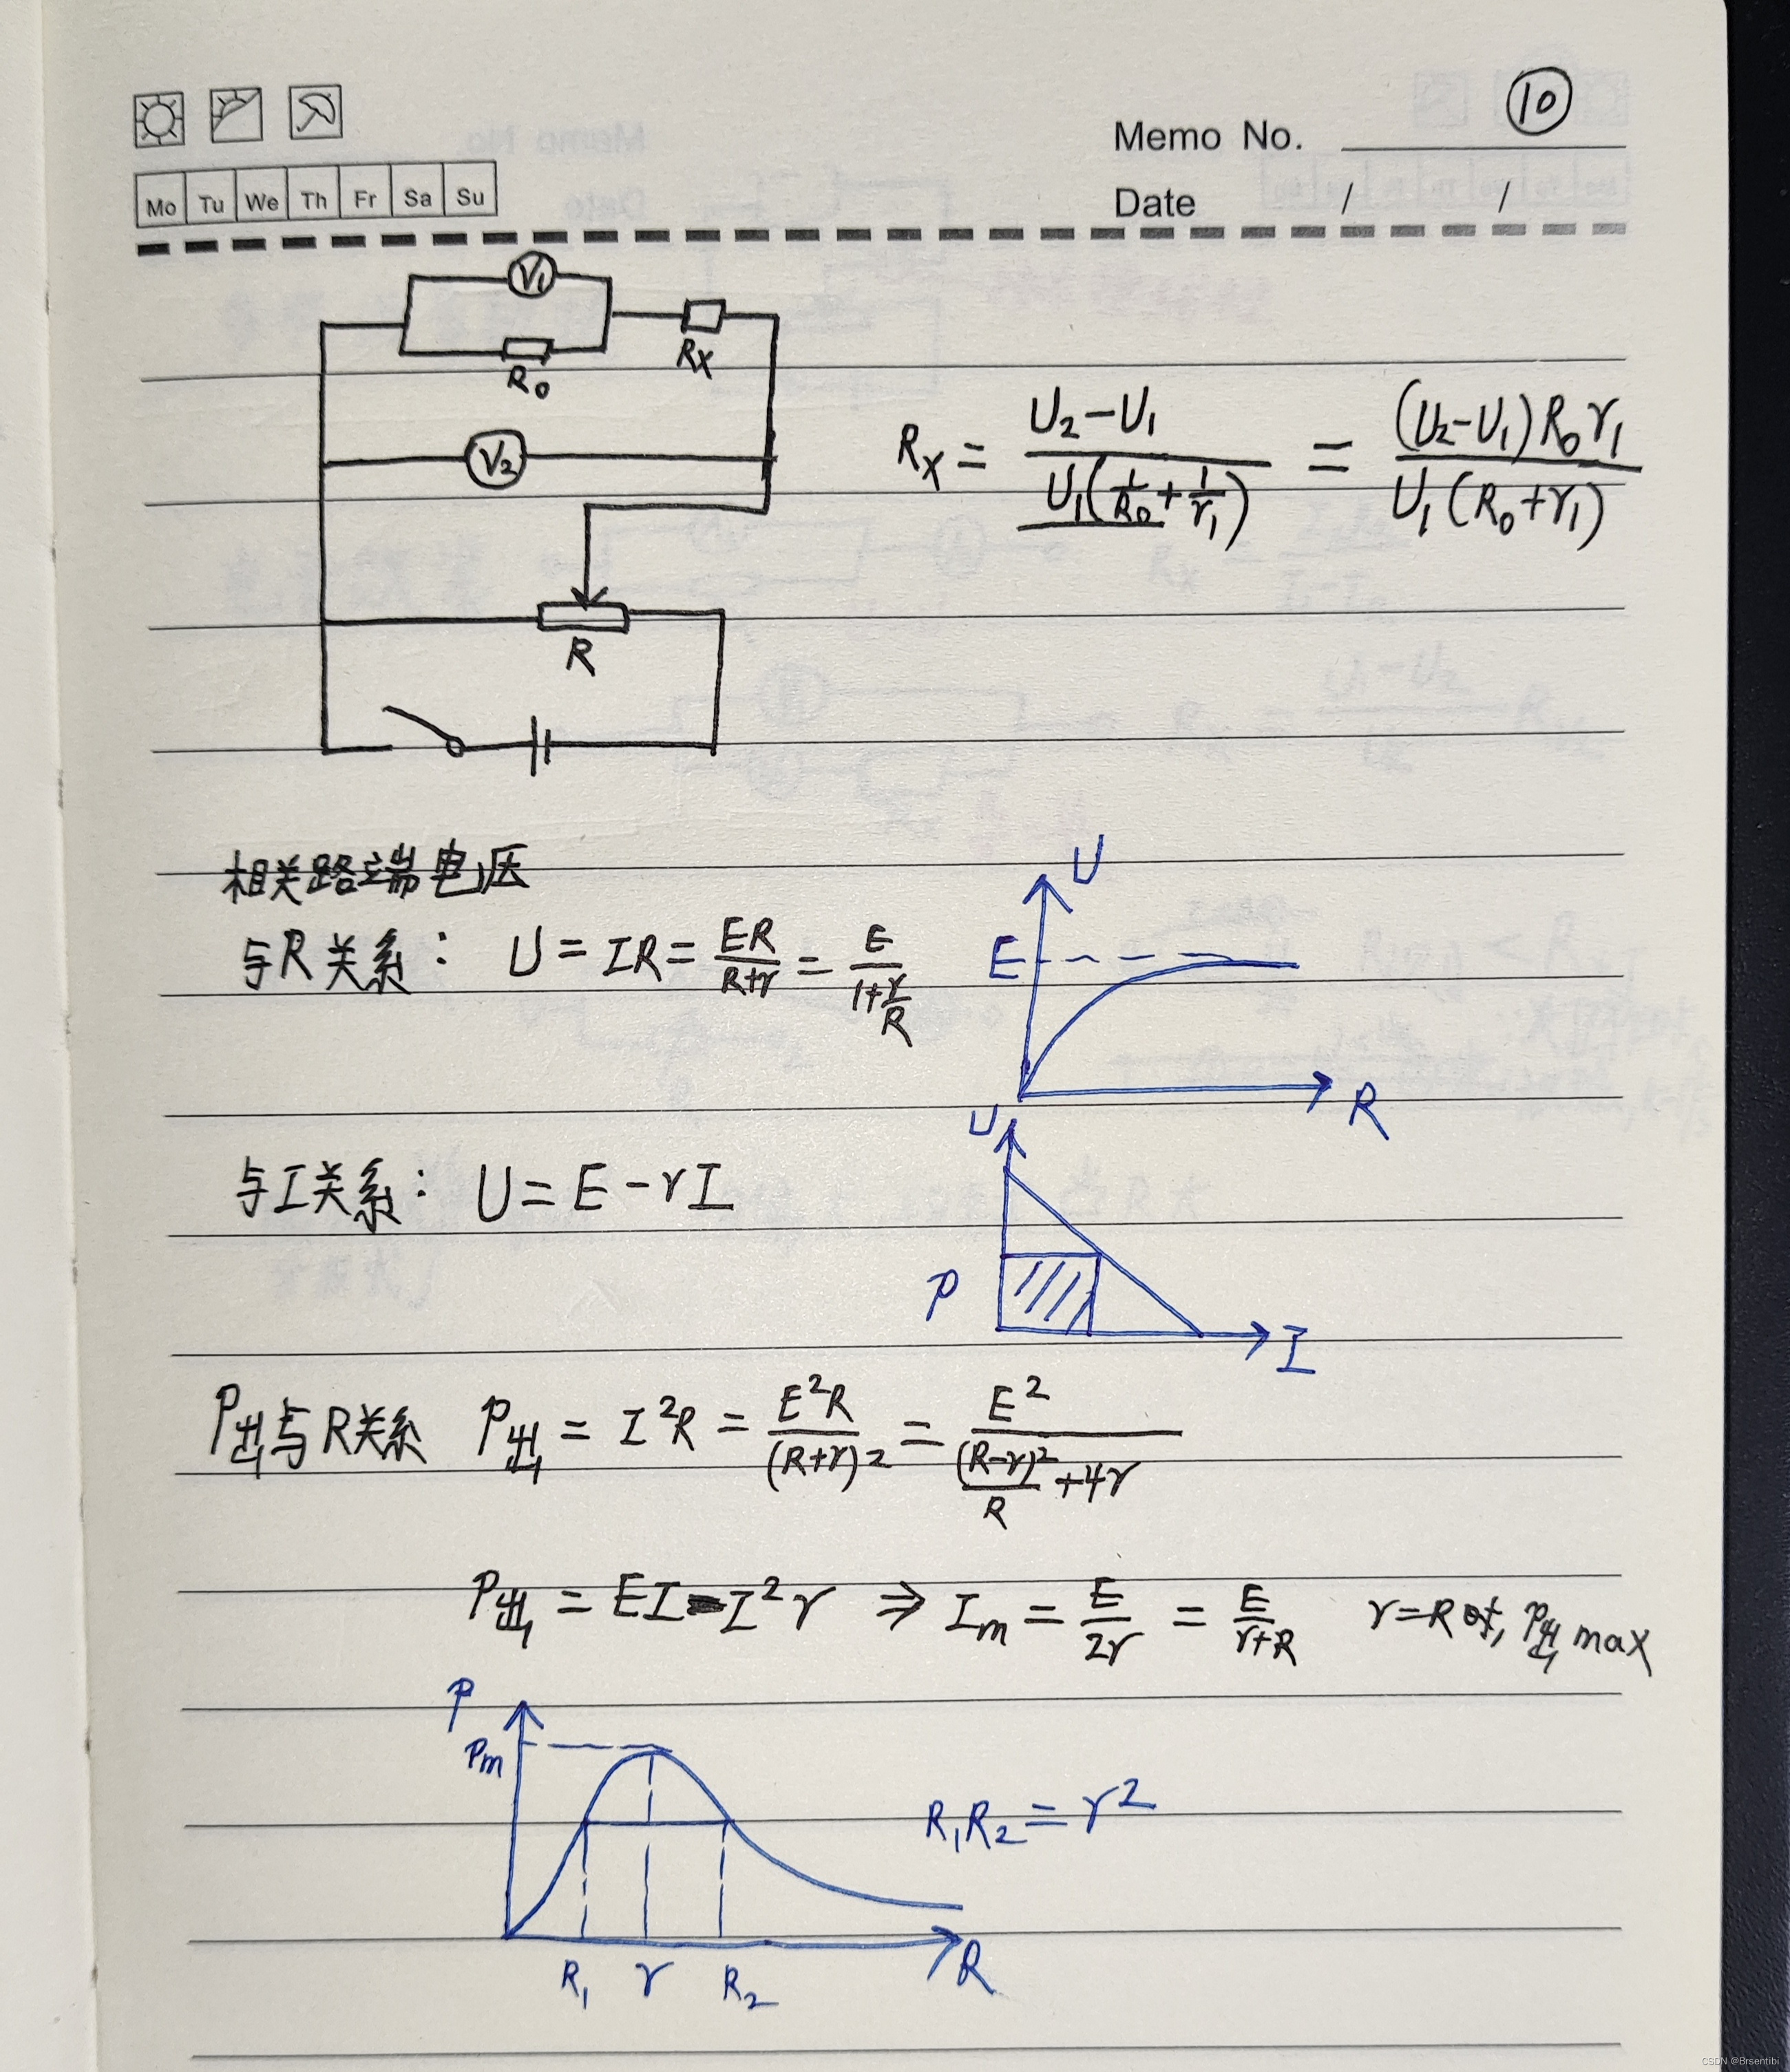 ⑩
Memo No.
Mo Tu We Th Fr Sa Su
Date / /
V₁
R₀
Rx
V₂
R
Rx = (U₂-U₁)/(U₁(1/R₀+1/r₁)) = ((U₂-U₁)R₀r₁)/(U₁(R₀+r₁))
相关路端电压
与R关系: U = IR = ER/(R+r) = E/(1+r/R)
U
E
R
与I关系: U = E - rI
U
P
I
P出与R关系 P出 = I²R = E²R/(R+r)² = E²/((R-r)²/R+4r)
P出 = EI-I²r ⇒ Im = E/2r = E/(r+R) r=R时, P出 max
P
Pm
R₁ r R₂ R
R₁R₂ = r²
CSDN @Brsentibi